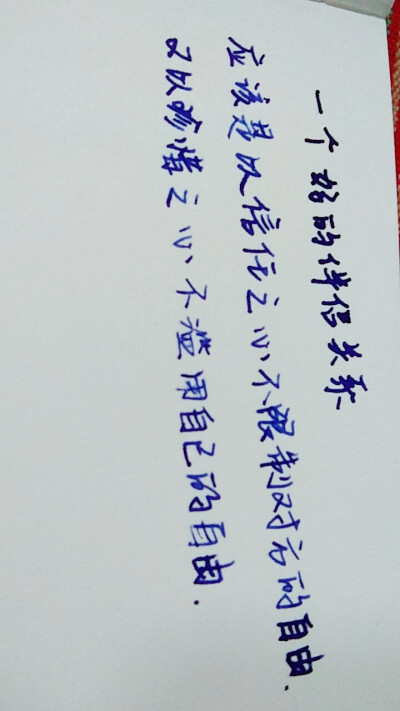 一个好的伴侣关系
应该是以信任之心不限制对方的自由.
又以珍惜之心不滥用自己的自由.